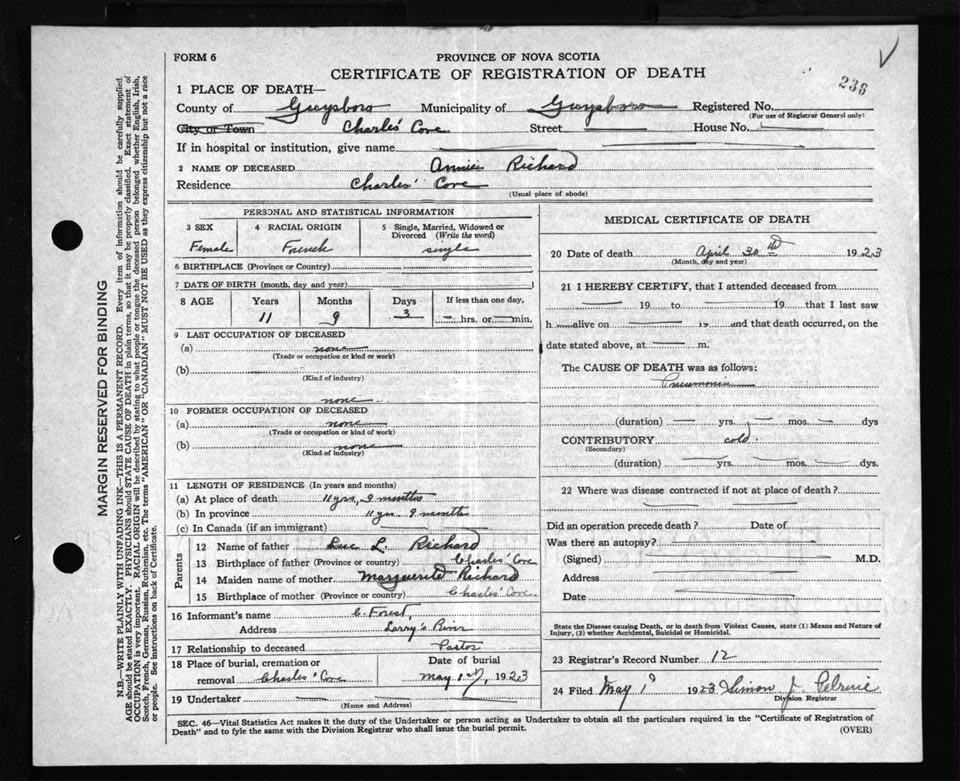 FORM 6
PROVINCE OF NOVA SCOTIA
CERTIFICATE OF REGISTRATION OF DEATH
236
1 PLACE OF DEATH—
County of Guysboro Municipality of Guysboro Registered No.
(For use of Registrar General only)
City or Town Charles' Cove Street House No.
If in hospital or institution, give name
2 NAME OF DECEASED Annie Richard
Residence Charles' Cove
(Usual place of abode)
PERSONAL AND STATISTICAL INFORMATION
3 SEX 4 RACIAL ORIGIN 5 Single, Married, Widowed or Divorced (Write the word)
Female French single
6 BIRTHPLACE (Province or Country)
7 DATE OF BIRTH (month, day and year)
8 AGE Years Months Days If less than one day,
11 9 3 — hrs. or — min.
9 LAST OCCUPATION OF DECEASED
(a) none
(Trade or occupation or kind or work)
(b)
(Kind of industry)
none
10 FORMER OCCUPATION OF DECEASED
(a) none
(Trade or occupation or kind of work)
(b) none
(Kind of industry)
11 LENGTH OF RESIDENCE (In years and months)
(a) At place of death 11 yrs, 9 months
(b) In province 11 yrs 9 months
(c) In Canada (if an immigrant)
Parents
12 Name of father Luc L. Richard
13 Birthplace of father (Province or country) Charles' Cove
14 Maiden name of mother Marguerite Richard
15 Birthplace of mother (Province or country) Charles' Cove
16 Informant's name C. Forest
Address Larry's River
17 Relationship to deceased Pastor
18 Place of burial, cremation or removal Charles' Cove
Date of burial
May 1st, 1923
19 Undertaker
(Name and Address)
MEDICAL CERTIFICATE OF DEATH
20 Date of death April 30th 1923
(Month, day and year)
21 I HEREBY CERTIFY, that I attended deceased from
19 to 19 that I last saw
h alive on 19 and that death occurred, on the
date stated above, at m.
The CAUSE OF DEATH was as follows:
Pneumonia
(duration) — yrs. — mos. — dys
CONTRIBUTORY cold.
(Secondary)
(duration) — yrs. — mos. — dys.
22 Where was disease contracted if not at place of death?
Did an operation precede death? Date of
Was there an autopsy?
(Signed) M.D.
Address
Date
State the Disease causing Death, or in death from Violent Causes, state (1) Means and Nature of
Injury, (2) whether Accidental, Suicidal or Homicidal.
23 Registrar's Record Number 12
24 Filed May 1st 1923 Simon J. Pelrine
Division Registrar
SEC. 46—Vital Statistics Act makes it the duty of the Undertaker or person acting as Undertaker to obtain all the particulars required in the "Certificate of Registration of
Death" and to fyle the same with the Division Registrar who shall issue the burial permit.
(OVER)
MARGIN RESERVED FOR BINDING
N.B.—WRITE PLAINLY WITH UNFADING INK—THIS IS A PERMANENT RECORD. Every item of information should be carefully supplied.
AGE should be stated EXACTLY. PHYSICIANS should STATE CAUSE OF DEATH in plain terms, so that it may be properly classified. Exact statement of
OCCUPATION is very important. RACIAL ORIGIN will be described by stating to what people or tongue the deceased person belonged whether English, Irish,
Scotch, French, German, Russian, Ruthenian, etc. The terms "AMERICAN" OR "CANADIAN" MUST NOT BE USED as they express citizenship but not a race
or people. See instructions on back of Certificate.